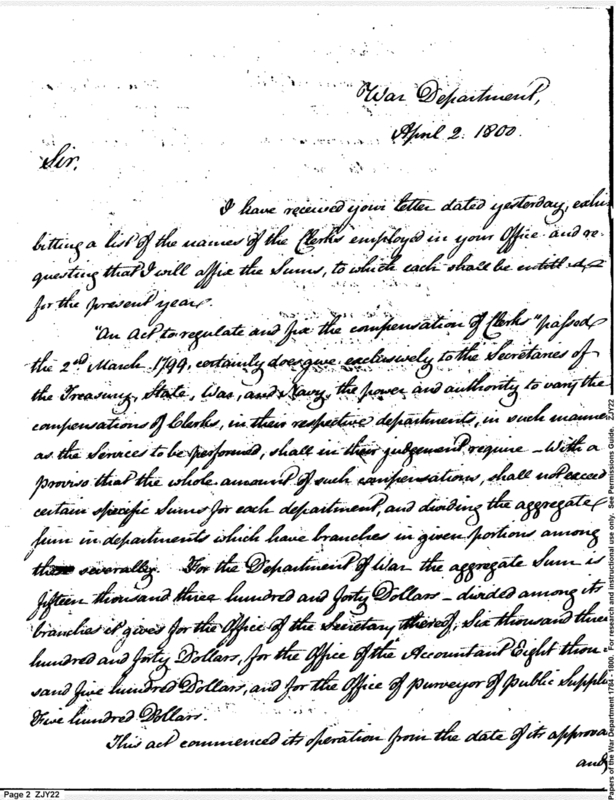 War Department,
April 2. 1800.
Sir,
I have received your letter dated yesterday, exhi
bitting a list of the names of the Clerks employed in your Office and re-
questing that I will affix the Sums, to which each shall be entitled
for the present year.
"An Act to regulate and fix the compensation of Clerks" passed
the 2nd March 1799, certainly does give exclusively to the Secretaries of
the Treasury, State, War, and Navy, the power and authority to vary the
compensations of Clerks, in their respective departments, in such manner
as the Services to be performed, shall in their judgement require - With a
proviso that the whole amount of such compensations, shall not exceed
certain specific Sums for each department, and dividing the aggregate
sum in departments which have branches in given portions among
them severally. For the Department of War the aggregate Sum is
fifteen thousand three hundred and forty Dollars - divided among its
branches it gives for the Office of the Secretary thereof, Six thousand three
hundred and forty Dollars, for the Office of the Accountant Eight thou-
sand five hundred Dollars, and for the Office of Purveyor of Public Supplies
Five hundred Dollars.
This act commenced its operation from the date of its approval
and
Page 2 ZJY22
Papers of the War Department 1784 - 1800. For research and instructional use only. See Permissions Guide. ZJY22